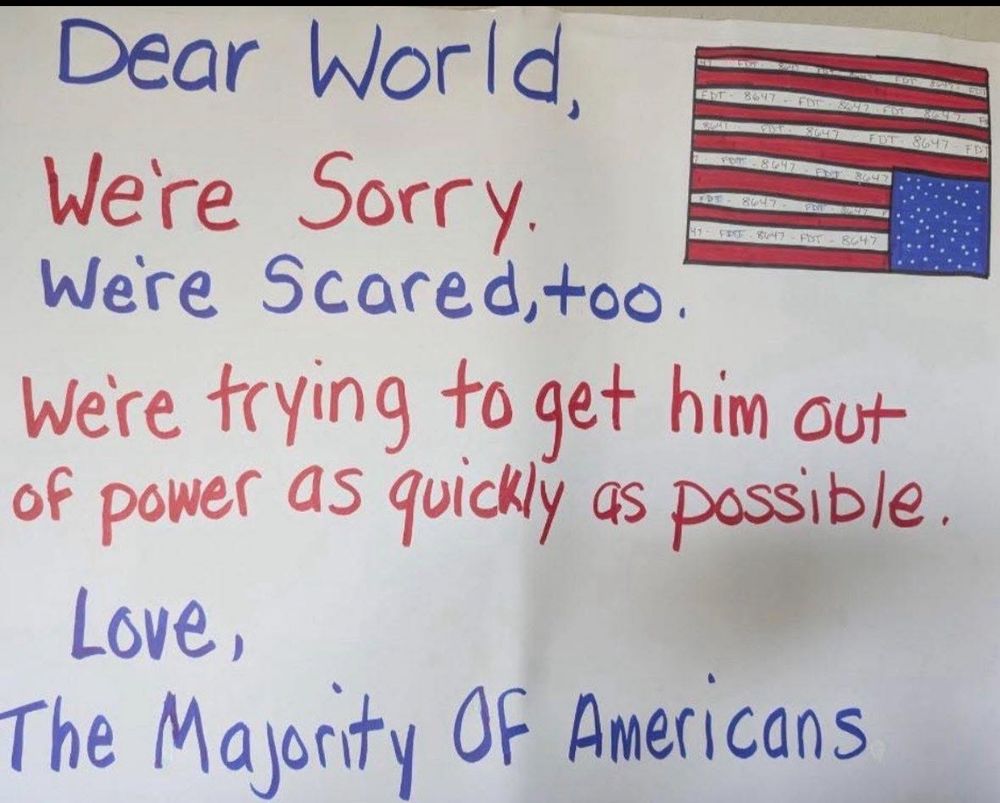 Dear World,
We're Sorry.
We're Scared, too.
We're trying to get him out
of power as quickly as possible.
Love,
The Majority Of Americans
47 - FDT - 8647 - FDT - 8647 - FDT - 8647 - FDT
FDT - 8647 - FDT - 8647 - FDT - 8647 - F
8647 - FDT - 8647 - FDT - 8647 - FDT
7 - FDT - 8647 - FDT - 8647
FDT - 8647 - FDT - 8647 F
47 - FDT - 8647 - FDT - 8647